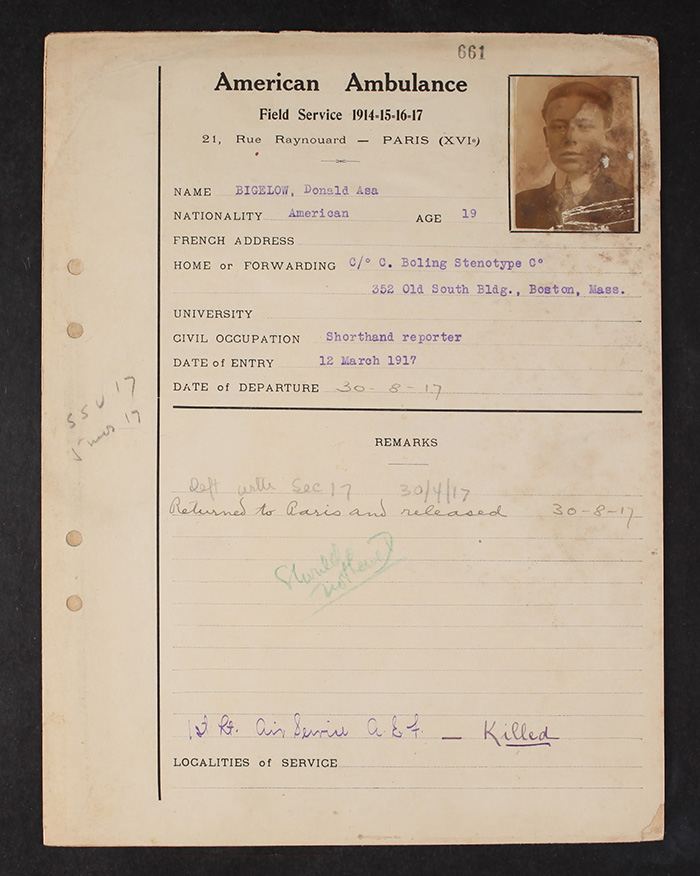 661
American Ambulance
Field Service 1914-15-16-17
21, Rue Raynouard — PARIS (XVIe)
NAME BIGELOW, Donald Asa
NATIONALITY American AGE 19
FRENCH ADDRESS
HOME or FORWARDING C/o C. Boling Stenotype Co
352 Old South Bldg., Boston, Mass.
UNIVERSITY
CIVIL OCCUPATION Shorthand reporter
DATE of ENTRY 12 March 1917
DATE of DEPARTURE 30-8-17
SSU 17
17
REMARKS
Left with Sec 17 30/4/17
Returned to Paris and released 30-8-17
1st Lt. Air Service A.E.F. — Killed
LOCALITIES of SERVICE